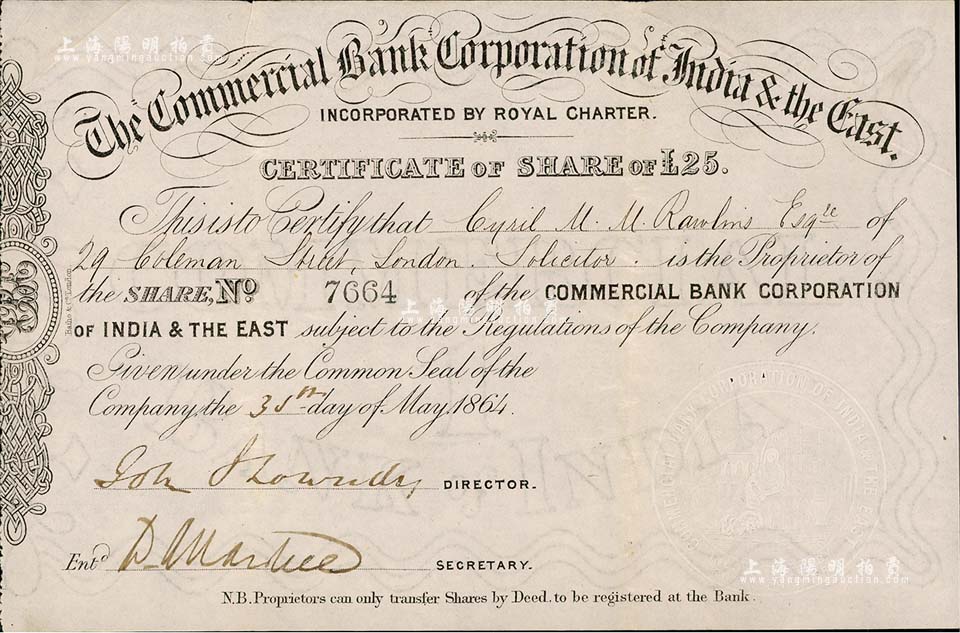 The Commercial Bank Corporation of India & the East.
INCORPORATED BY ROYAL CHARTER.
CERTIFICATE OF SHARE OF £25.
This is to Certify that Cyril M. M. Rawlins Esqre of
29 Coleman Street, London. Solicitor. is the Proprietor of
the SHARE, No. 7664 of the COMMERCIAL BANK CORPORATION
OF INDIA & THE EAST subject to the Regulations of the Company.
Given under the Common Seal of the
Company, the 31st day of May, 1864.
DIRECTOR.
Entd SECRETARY.
N.B. Proprietors can only transfer Shares by Deed, to be registered at the Bank.
COMMERCIAL BANK CORPORATION OF INDIA & THE EAST
上海陽明拍賣
www.yangmingauction.com
上海陽明拍賣
www.yangmingauction.com
上海陽明拍賣
www.yangmingauction.com